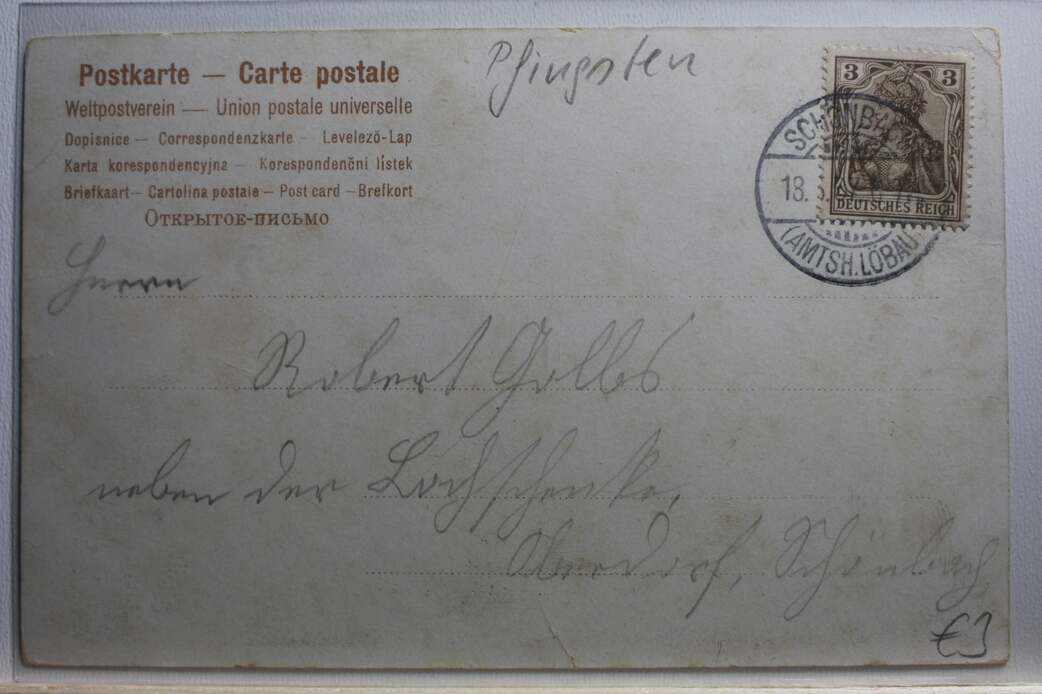 Postkarte — Carte postale
Weltpostverein — Union postale universelle
Dopisnice — Correspondenzkarte — Levelező-Lap
Karta korespondencyjna — Korespondenční lístek
Briefkaart — Cartolina postale — Post card — Brefkort
Открытое-письмо
Pfingsten
3 3
DEUTSCHES REICH
18.
(AMTSH. LÖBAU)
Herrn
Robert Golbs
neben der Lochschenke,
Oberdorf, Schönbach
€3